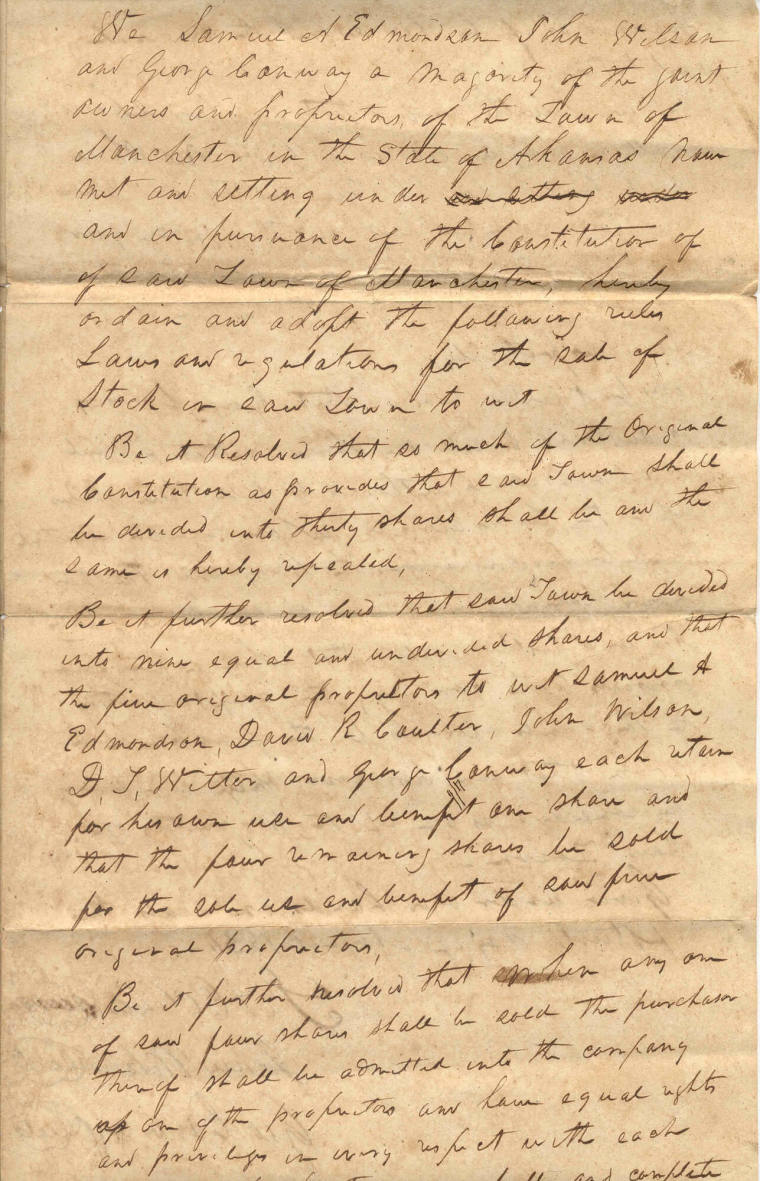 We Samuel A Edmondson John Wilson
and George Conway a majority of the joint
owners and proprietors, of the Town of
Manchester in the State of Arkansas now
met and setting under and setting under
and in pursuance of the Constitution of
of said Town of Manchester, hereby
ordain and adopt the following rules
Laws and regulations for the sale of
Stock in said Town to wit
Be it Resolved that so much of the Original
Constitution as provides that said Town shall
be divided into thirty shares shall be and the
same is hereby repealed,
Be it further resolved that said Town be divided
into nine equal and undivided shares, and that
the five original proprietors to wit Samuel A
Edmondson, David R Coulter, John Wilson,
D, T, Witter and George Conway each retain
for his own use and benefit one share and
that the four remaining shares be sold
for the sole use and benefit of said five
original proprietors,
Be it further resolved that when any one
of said four shares shall be sold the purchaser
thereof shall be admitted into the company
as one of the proprietors and have equal rights
and privileges in every respect with each
and complete